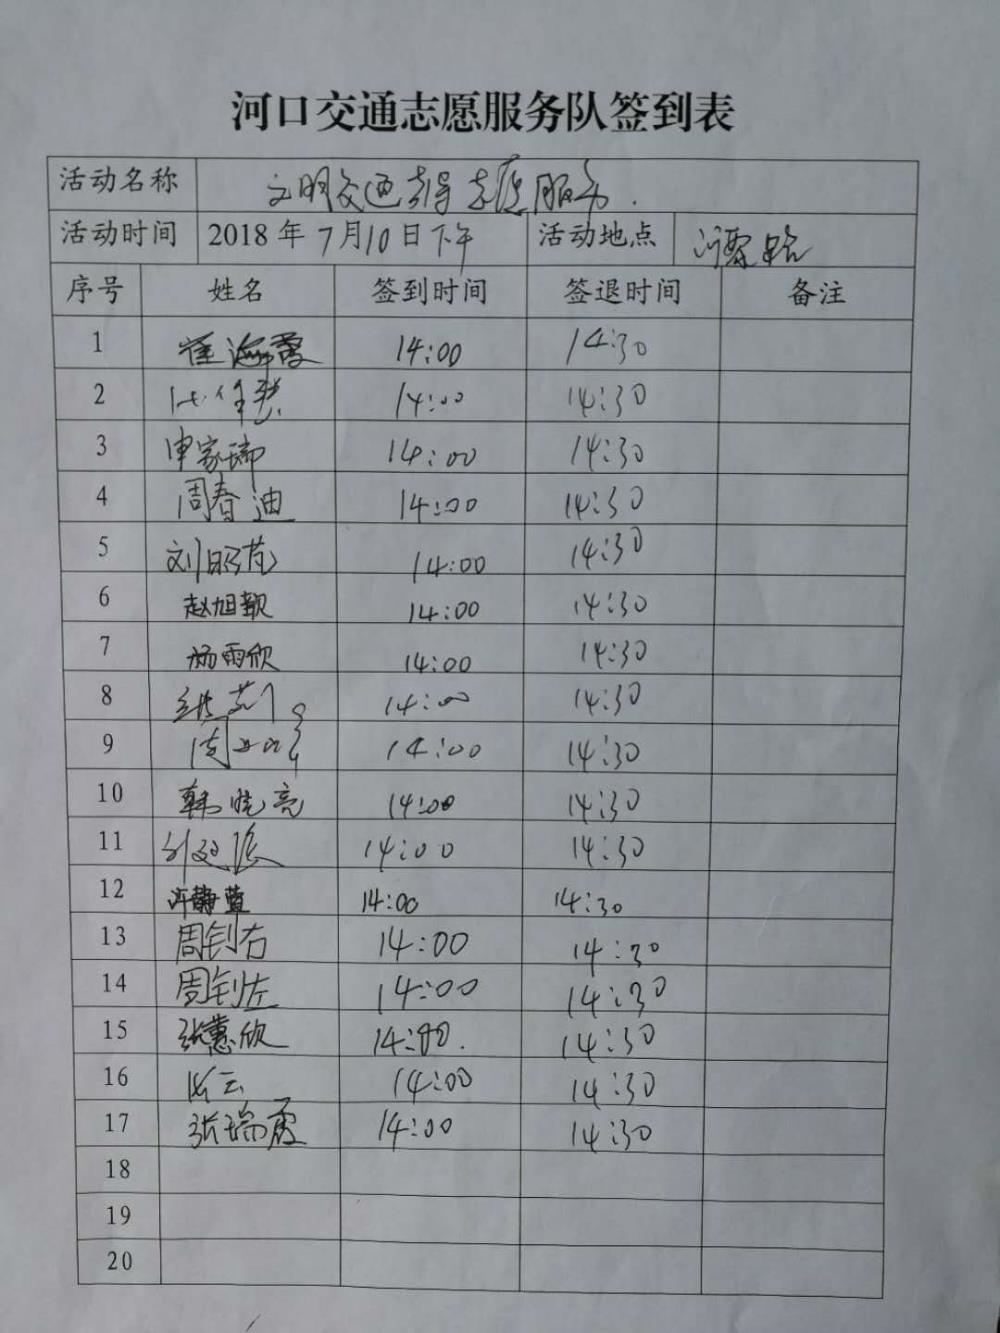 河口交通志愿服务队签到表
活动名称 文明交通劝导志愿服务.
活动时间 2018年7月10日下午 活动地点
序号 姓名 签到时间 签退时间 备注
1 崔海霞 14:00 14:30
2 14:00 14:30
3 申家瑞 14:00 14:30
4 周春迪 14:00 14:30
5 刘昭芃 14:00 14:30
6 赵旭颖 14:00 14:30
7 杨雨欣 14:00 14:30
8 14:00 14:30
9 14:00 14:30
10 韩晓亮 14:00 14:30
11 14:00 14:30
12 许静萱 14:00 14:30
13 周钊右 14:00 14:30
14 周钊左 14:00 14:30
15 张蕙欣 14:00. 14:30
16 14:00 14:30
17 张瑞霞 14:00 14:30
18
19
20